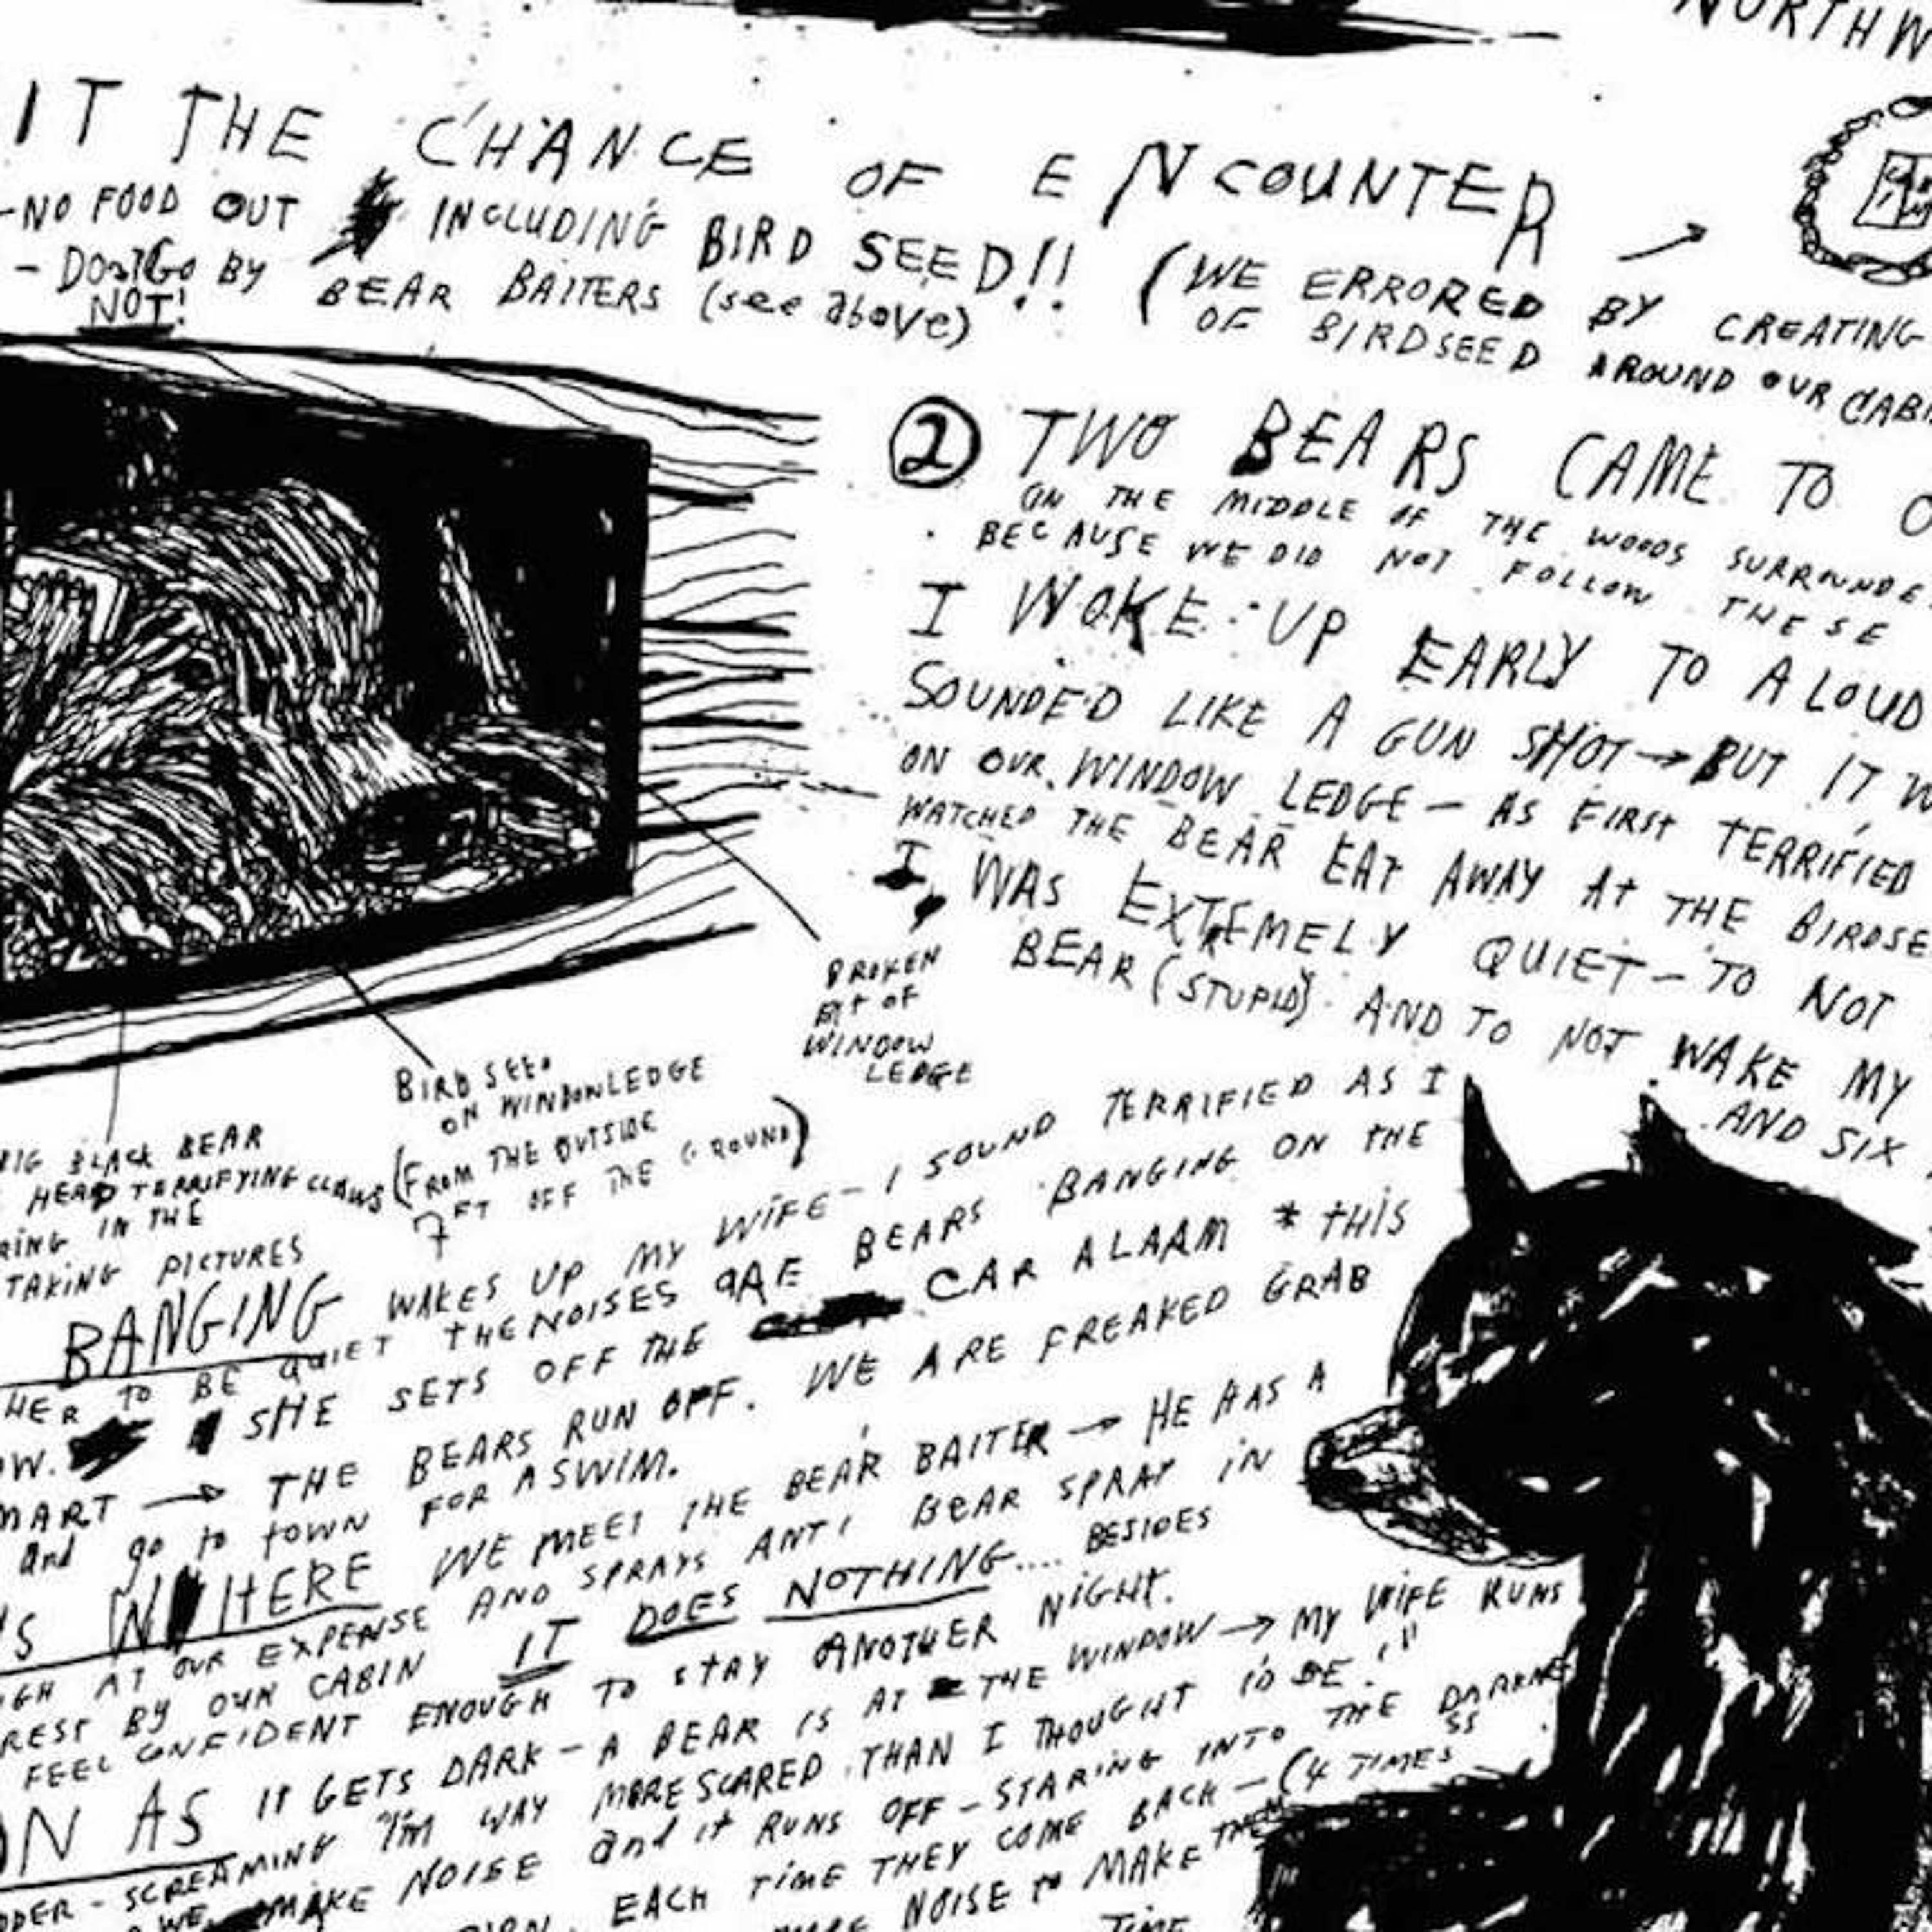 NORTHW
IT THE CHANCE OF ENCOUNTER
-NO FOOD OUT INCLUDING BIRD SEED!! (WE ERRORED BY CREATING
- DO NOT GO BY BEAR BAITERS (see above)
NOT!
OF BIRDSEED AROUND OUR CABI
② TWO BEARS CAME TO O
IN THE MIDDLE OF THE WOODS SURROUNDE
BECAUSE WE DID NOT FOLLOW THESE
I WOKE UP EARLY TO A LOUD
SOUNDED LIKE A GUN SHOT → BUT IT W
ON OUR WINDOW LEDGE — AS FIRST TERRIFIED
WATCHED THE BEAR EAT AWAY AT THE BIRDSE
I WAS EXTREMELY QUIET — TO NOT
BEAR (STUPID) AND TO NOT WAKE MY
AND SIX
BROKEN
BIT OF
WINDOW
LEDGE
BIRD SEED
ON WINDOWLEDGE
(FROM THE OUTSIDE
7 FT OFF THE GROUND)
BIG BLACK BEAR
HEAD TERRIFYING CLAWS
RING IN THE
TAKING PICTURES
BANGING WAKES UP MY WIFE — I SOUND TERRIFIED AS I
HER TO BE QUIET THE NOISES ARE BEARS BANGING ON THE
OW. SHE SETS OFF THE CAR ALARM * THIS
MART → THE BEARS RUN OFF. WE ARE FREAKED GRAB
and go to town FOR A SWIM.
'S WHERE WE MEET THE BEAR BAITER → HE HAS A
GH AT OUR EXPENSE AND SPRAYS ANTI BEAR SPRAY IN
REST BY OUR CABIN IT DOES NOTHING.... BESIDES
FEEL CONFIDENT ENOUGH TO STAY ANOTHER NIGHT.
ON AS IT GETS DARK — A BEAR IS AT THE WINDOW → MY WIFE RUNS
DDER - SCREAMING "I'M WAY MORE SCARED THAN I THOUGHT I'D BE!"
WE MAKE NOISE and it RUNS OFF — STARING INTO THE DARKNESS
EACH TIME THEY COME BACK — (4 TIMES
NOISE to MAKE THE
TIME